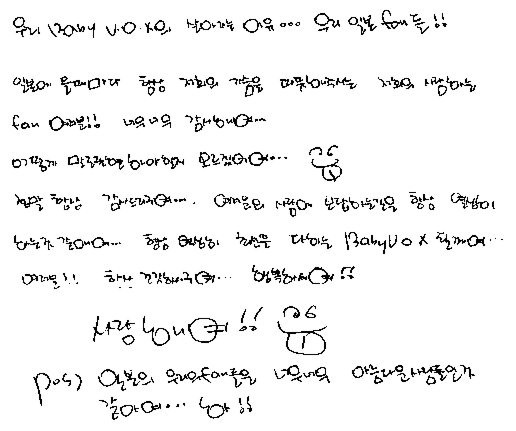 우리 Baby V.O.X의 살아가는 이유... 우리 일본 fan들!!
일본에 올때마다 항상 저희의 가슴을 따뜻해주시는 저희의 사랑하는
fan 여러분!! 너무너무 감사해여...
어떻게 말로표현해야할지 모르겠어여...
정말 항상 감사드리구여... 여러분의 사랑에 보답하는길은 항상 열심히
하는것 같애여... 항상 열심히 최선을 다하는 Baby V.O.X 될께여...
여러분!! 항상 건강하시구여... 행복하세여!!
사랑해여!!
pos) 일본의 우리의 fan들은 너무너무 아름다운사람들인거
같아여...